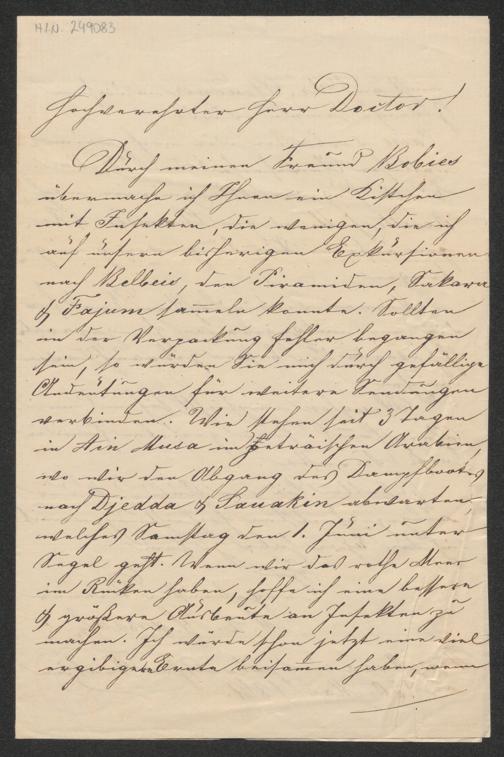 H.I.N. 249083
Hochverehrter Herr Doctor!
Durch meinen Freund Bobies
übermache ich Ihnen ein Kistchen
mit Insekten, die wenigen, die ich
auf unsern bisherigen Exkursionen
nach Belbeis, den Piramiden, Sakara
& Fajum sam̅eln konnte. Sollten
in der Verpackung fehler begangen
sein, so würden Sie mich durch gefällige
Andeutungen für weitere Sendungen
verbinden. Wir stehen seit 3 Tagen
in Ain Musa im peträischen Arabien,
wo wir den Abgang des Dampfbootes
nach Djedda & Sauakin abwarten,
welches Samstag den 1. Juni unter
Segel geht. Wenn wir das rothe Meer
im Rüken haben, hoffe ich eine bessere
& größere Ausbeute an Insekten zu
machen. Ich würde schon jetzt eine viel
ergibigere Ernte beisammen haben, wenn